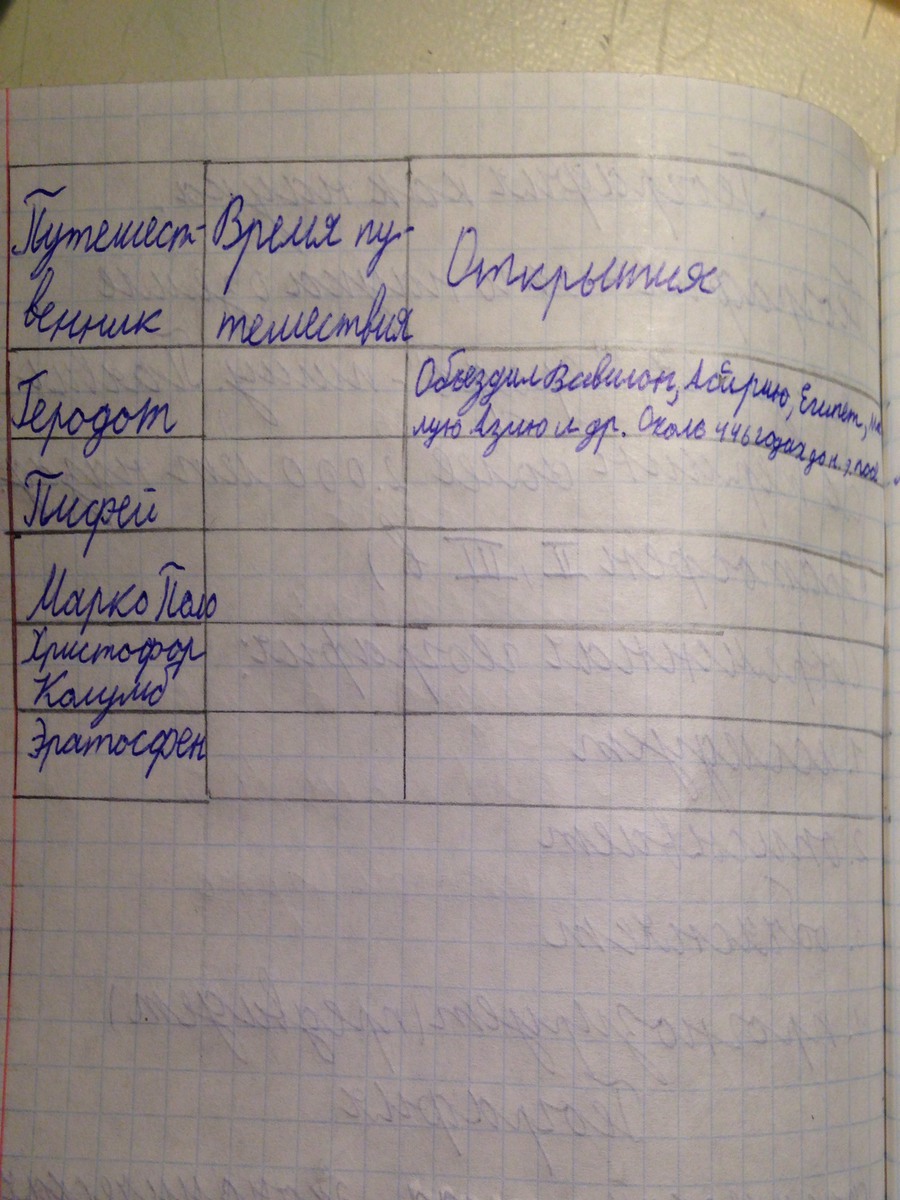 Путешест- Время пу- Открытия
венник тешествия
Геродот Объездил Вавилон, Ассирию, Египет, Ма
лую Азию и др. Около 446 года до н.э. посе
Пифей
Марко Поло
Христофор
Колумб
Эратосфен